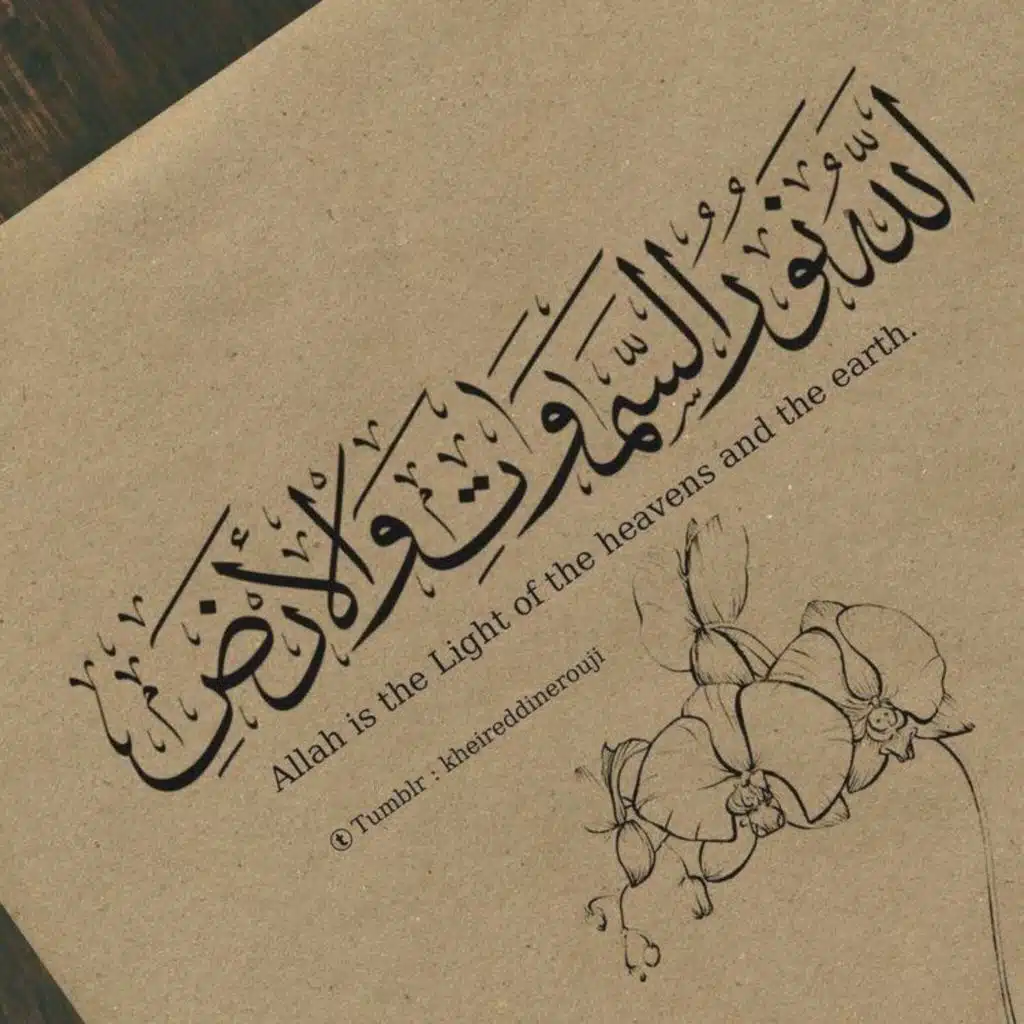 الله نُورُ السَّمَوَاتِ وَالأَرْضِ
Allah is the Light of the heavens and the earth.
t Tumblr : kheireddinerouji